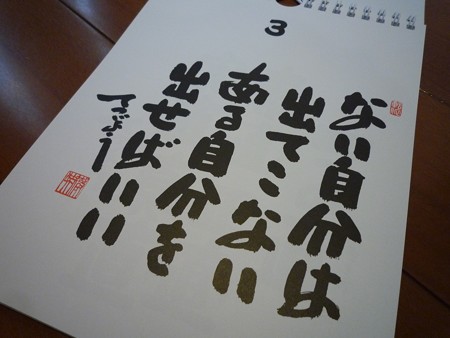 3
ない自分は
出てこない
ある自分を
出せばいい